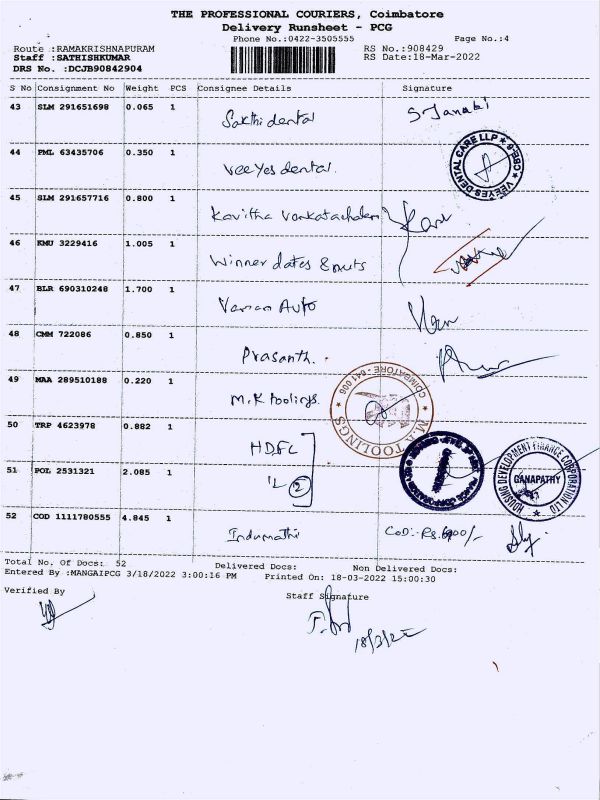 THE PROFESSIONAL COURIERS, Coimbatore
Delivery Runsheet - PCG
Phone No.:0422-3505555 Page No.:4
Route :RAMAKRISHNAPURAM RS No.:908429
Staff :SATHISHKUMAR RS Date:18-Mar-2022
DRS No. :DCJB90842904
S No Consignment No Weight PCS Consignee Details Signature
43 SLM 291651698 0.065 1 Sakthi dental S. Janaki
44 PML 63435706 0.350 1 veeyes dental.
VEEYES DENTAL CARE LLP ★ CBE-6 ★
45 SLM 291657716 0.800 1 Kavitha Venkatachalam
46 KMU 3229416 1.005 1 Winner dates & nuts
47 BLR 690310248 1.700 1 Auto
48 CMM 722086 0.850 1 Prasanth.
49 MAA 289510188 0.220 1 M.K toolings
M.K TOOLINGS ★ COIMBATORE - 641 006 ★
50 TRP 4623978 0.882 1 HDFC
51 POL 2531321 2.085 1 2
HOUSING DEVELOPMENT FINANCE CORPORATION LTD
GANAPATHY
52 COD 1111780555 4.845 1 Indumathi COD:- Rs.
Total No. Of Docs: 52 Delivered Docs: Non Delivered Docs:
Entered By :MANGAIPCG 3/18/2022 3:00:16 PM Printed On: 18-03-2022 15:00:30
Verified By Staff Signature
18/3/22